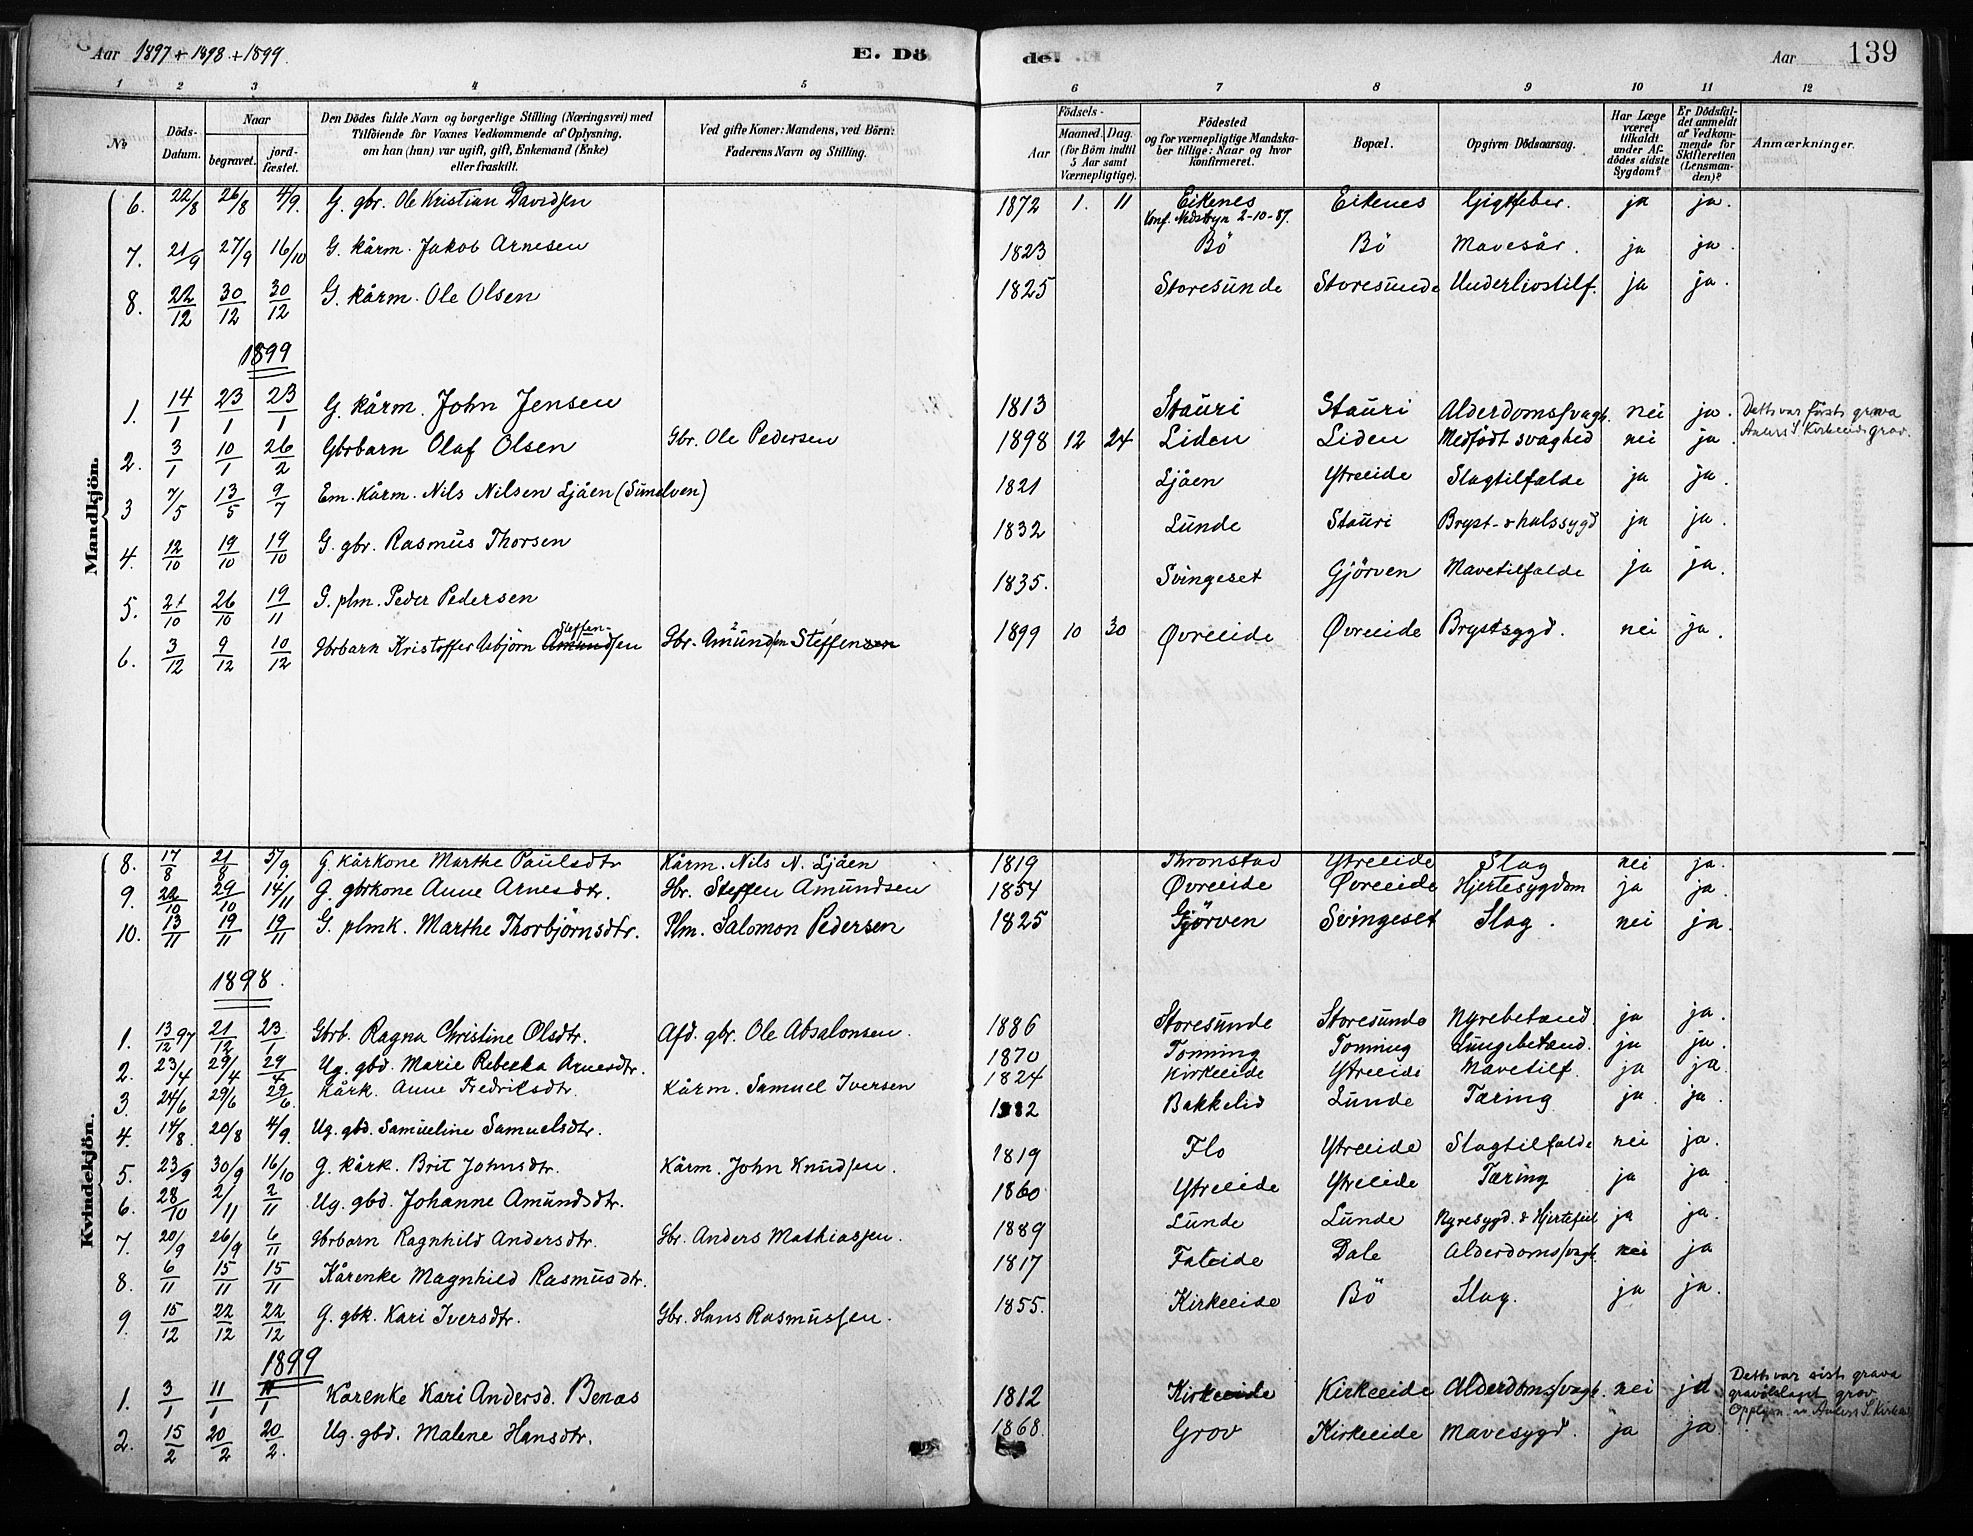 Aar 1897 + 1898 + 1899. E. Döde. Aar 139
1 2 3 4 5 6 7 8 9 10 11 12
No | Döds-Datum. | Naar begravet. | jordfæstet. | Den Dödes fulde Navn og borgerlige Stilling (Næringsvei) med Tilföiende for Voxnes Vedkommende af Oplysning, om han (hun) var ugift, gift, Enkemand (Enke) eller fraskilt. | Ved gifte Koner: Mandens, ved Börn: Faderens Navn og Stilling. | Födsels- Aar | Maaned. | Dag. (for Börn indtil 5 Aar samt Værnepligtige). | Födested og for værnepligtige Mandskaber tillige: Naar og hvor konfirmeret. | Bopæl. | Opgiven Dödsaarsag. | Har Læge været tilkaldt under Afdödes sidste Sygdom? | Er Dödsfaldet anmeldt af Vedkommende for Skifteretten (Lensmanden)? | Anmærkninger.
Mandkjön.
6. 22/8 26/8 4/9. G. gbr. Ole Kristian Davidsen 1872 1. 11 Eikenes Konf. Nedstryn 2-10-87. Eikenes Gigtfeber. ja ja.
7. 21/9 27/9 16/10 G. kårm. Jakob Arnesen 1823 Bö Bö Mavesår. ja ja.
8. 22/12 30/12 30/12 G. kårm. Ole Olsen 1825 Storesunde Storesunde Underlivstilf. ja ja.
1899
1. 14/1 23/1 23/1 G. kårm. John Jensen 1813 Stauri Stauri Alderdomssvagh. nei ja. Dette var första grava
2. 3/1 10/1 26/2 Gbrbarn Olaf Olsen Gbr. Ole Pedersen 1898 12 24 Liden Liden Medfödt svaghed nei ja. Anders S Kirkeeide grav.
3 7/5 13/5 9/7 Em. kårm. Nils Nilsen Ljåen (Sunelven) 1821 Ljåen Ytreeide Slagtilfælde ja ja.
4. 12/10 19/10 19/10 G. gbr. Rasmus Thorsen 1832 Lunde Stauri Bryst- & halssygd ja ja.
5. 21/10 26/10 19/11 G. plm. Peder Pedersen 1835. Svingeset Gjörven Mavetilfælde ja ja.
6. 3/12 9/12 10/12 Gbrbarn Kristoffer Asbjörn Amundsen Steffen- Gbr. Amundsen Steffensen 1899 10 30 Øvreeide Øvreeide Brystsygd. nei ja.
Kvindekjön.
8. 17/8 21/8 5/9. G. kårkone Marthe Paulsdtr Kårm. Nils N. Ljåen 1819 Thronstad Ytreeide Slag nei ja.
9. 22/10 29/10 14/11 G. gbrkone Anne Arnesdtr. Gbr. Steffen Amundsen 1854 Øvreeide Øvreeide Hjertesygdom ja ja.
10. 13/11 19/11 19/11 G. plmk. Marthe Thorbjörnsdtr. Plm. Salomon Pedersen 1825 Gjörven Svingeset Slag. nei ja.
1898.
1. 13/12 97 21/12 23/1 Gbrb. Ragna Christine Olsdtr. Afd. gbr. Ole Absalonsen. 1886 Storesunde Storesunde Nyrebetænd. ja ja.
2. 23/4 29/4 24/4 Ug. gbd. Marie Rebekka Arnesdtr. 1870 Tonning Tonning Lungebetænd. ja ja.
3. 24/6 29/6 29/6 Kårk. Anne Fredriksdtr. Kårm. Samuel Iversen 1824 Kirkeeide Ytreeide Mavetilf. ja ja.
4. 14/8 20/8 4/9 Ug. gbd. Samueline Samuelsdtr. 1882 Bakkelid Lunde Tæring ja ja.
5. 23/9 30/9 16/10 G. kårk. Brit Johnsdtr. Kårm. John Knudsen. 1819 Flo Ytreeide Slagtilfælde nei ja.
6. 28/10 2/11 2/11 Ug. gbd. Johanne Amundsdtr. 1860 Ytreeide Ytreeide Tæring ja ja
7. 20/9 26/9 6/11 Gbrbarn Ragnhild Andersdtr. Gbr. Anders Mathiassen. 1889 Lunde Lunde Nyresygd. & Hjertefeil ja ja.
8. 6/11 15/11 15/11 Kårenke Magnhild Rasmusdtr. 1817 Faleide Dale Alderdomssvagh. nei ja
9. 15/12 22/12 22/12 G. gbk. Kari Iversdtr. Gbr. Hans Rasmussen. 1855. Kirkeeide Bö Slag. ja ja.
1899
1. 3/1 11/1 11/1 Kårenke Kari Andersd. Benås 1812 Kirkeeide Kirkeeide Alderdomssvagh. nei ja Dette var siste grava
2. 15/2 20/2 20/2. Ug. gbd. Malene Hansdtr. 1868. Grov Kirkeeide Mavesygd. ja ja.